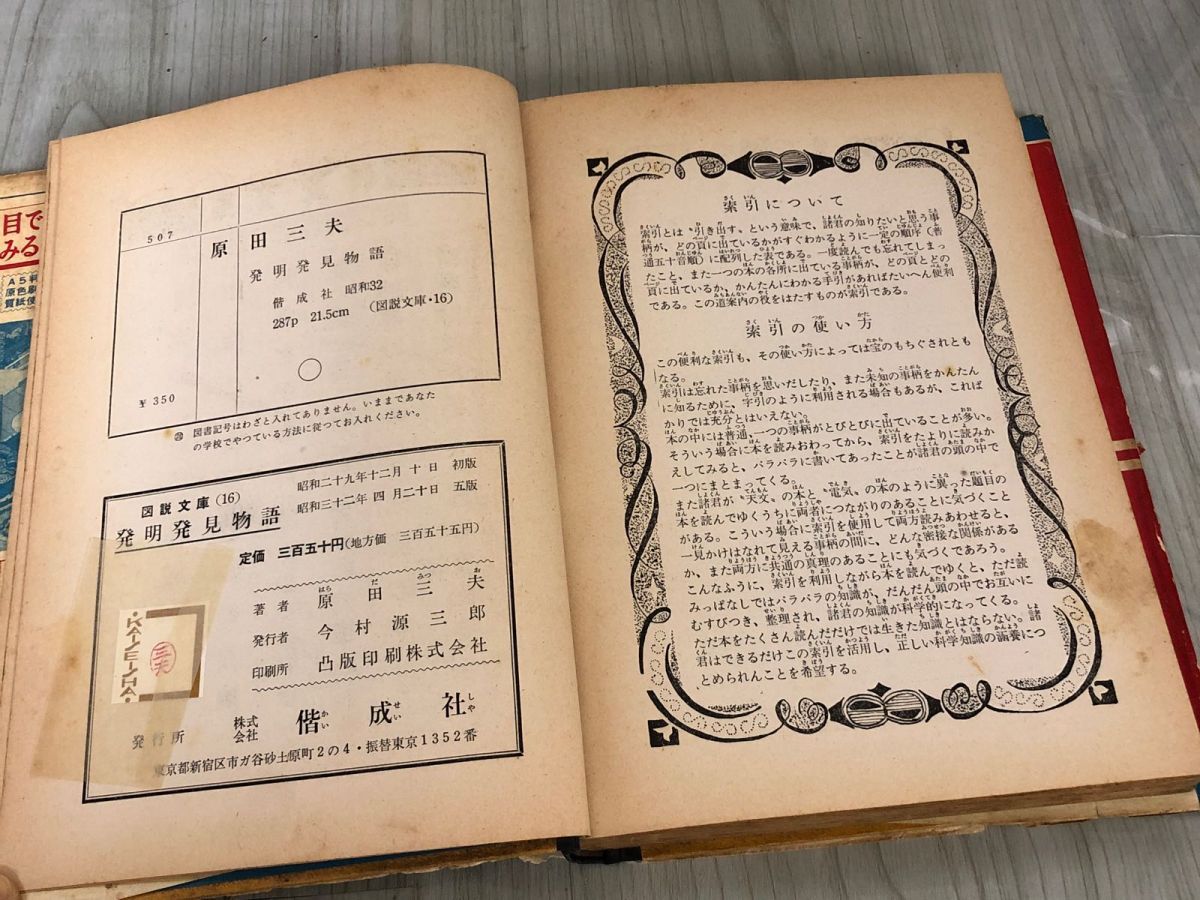 目で
みる
A5判
507
原田三夫
発明発見物語
偕成社 昭和32
287p 21.5cm (図説文庫・16)
¥ 350
図書記号はわざと入れてありません。いままであなた
の学校でやつている方法に従つてお入れください。
図説文庫(16)
発明発見物語
昭和二十九年十二月十日 初版
昭和三十二年四月二十日 五版
定価 三百五十円(地方価 三百五十五円)
著者 原田三夫
はら だ みつ お
発行者 今村源三郎
印刷所 凸版印刷株式会社
発行所 株式会社 偕成社
かい せい しや
東京都新宿区市ガ谷砂土原町2の4・振替東京1352番
・KAISEI-SHA・
三夫
索引について
索引とは〝引き出す〟という意味で、諸君の知りたいと思う事
柄が、どの頁に出ているかがすぐわかるように一定の順序(普
通五十音順)に配列した表である。一度読んでも忘れてしまっ
たこと、また一つの本の各所に出ている事柄が、どの頁とどの
頁に出ているか、かんたんにわかる手引があればたいへん便利
である。この道案内の役をはたすものが索引である。
索引の使い方
この便利な索引も、その使い方によっては宝のもちぐされとも
なる。
索引は忘れた事柄を思いだしたり、また未知の事柄をかんたん
に知るために、字引のように利用される場合もあるが、これば
かりでは充分とはいえない。
本の中には普通、一つの事柄がとびとびに出ていることが多い。
そういう場合に本を読みおわってから、索引をたよりに読みか
えしてみると、バラバラに書いてあったことが諸君の頭の中で
一つにまとまってくる。
また諸君が〝天文〟の本と〝電気〟の本のように異った題目の
本を読んでゆくうちに両者につながりのあることに気づくこと
がある。こういう場合に索引を使用して両方読みあわせると、
一見かけはなれて見える事柄の間に、どんな密接な関係がある
か、また両方に共通の真理のあることにも気づくであろう。
こんなふうに、索引を利用しながら本を読んでゆくと、ただ読
みっぱなしではバラバラの知識が、だんだん頭の中でお互いに
むすびつき、整理され、諸君の知識が科学的になってくる。
ただ本をたくさん読んだだけでは生きた知識とはならない。諸
君はできるだけこの索引を活用し、正しい科学知識の涵養につ
とめられんことを希望する。